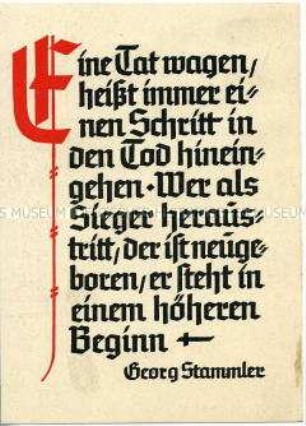 Eine Tat wagen,
heißt immer ei-
nen Schritt in
den Tod hinein-
gehen · Wer als
Sieger heraus-
tritt, der ist neuge-
boren, er steht in
einem höheren
Beginn
Georg Stammler